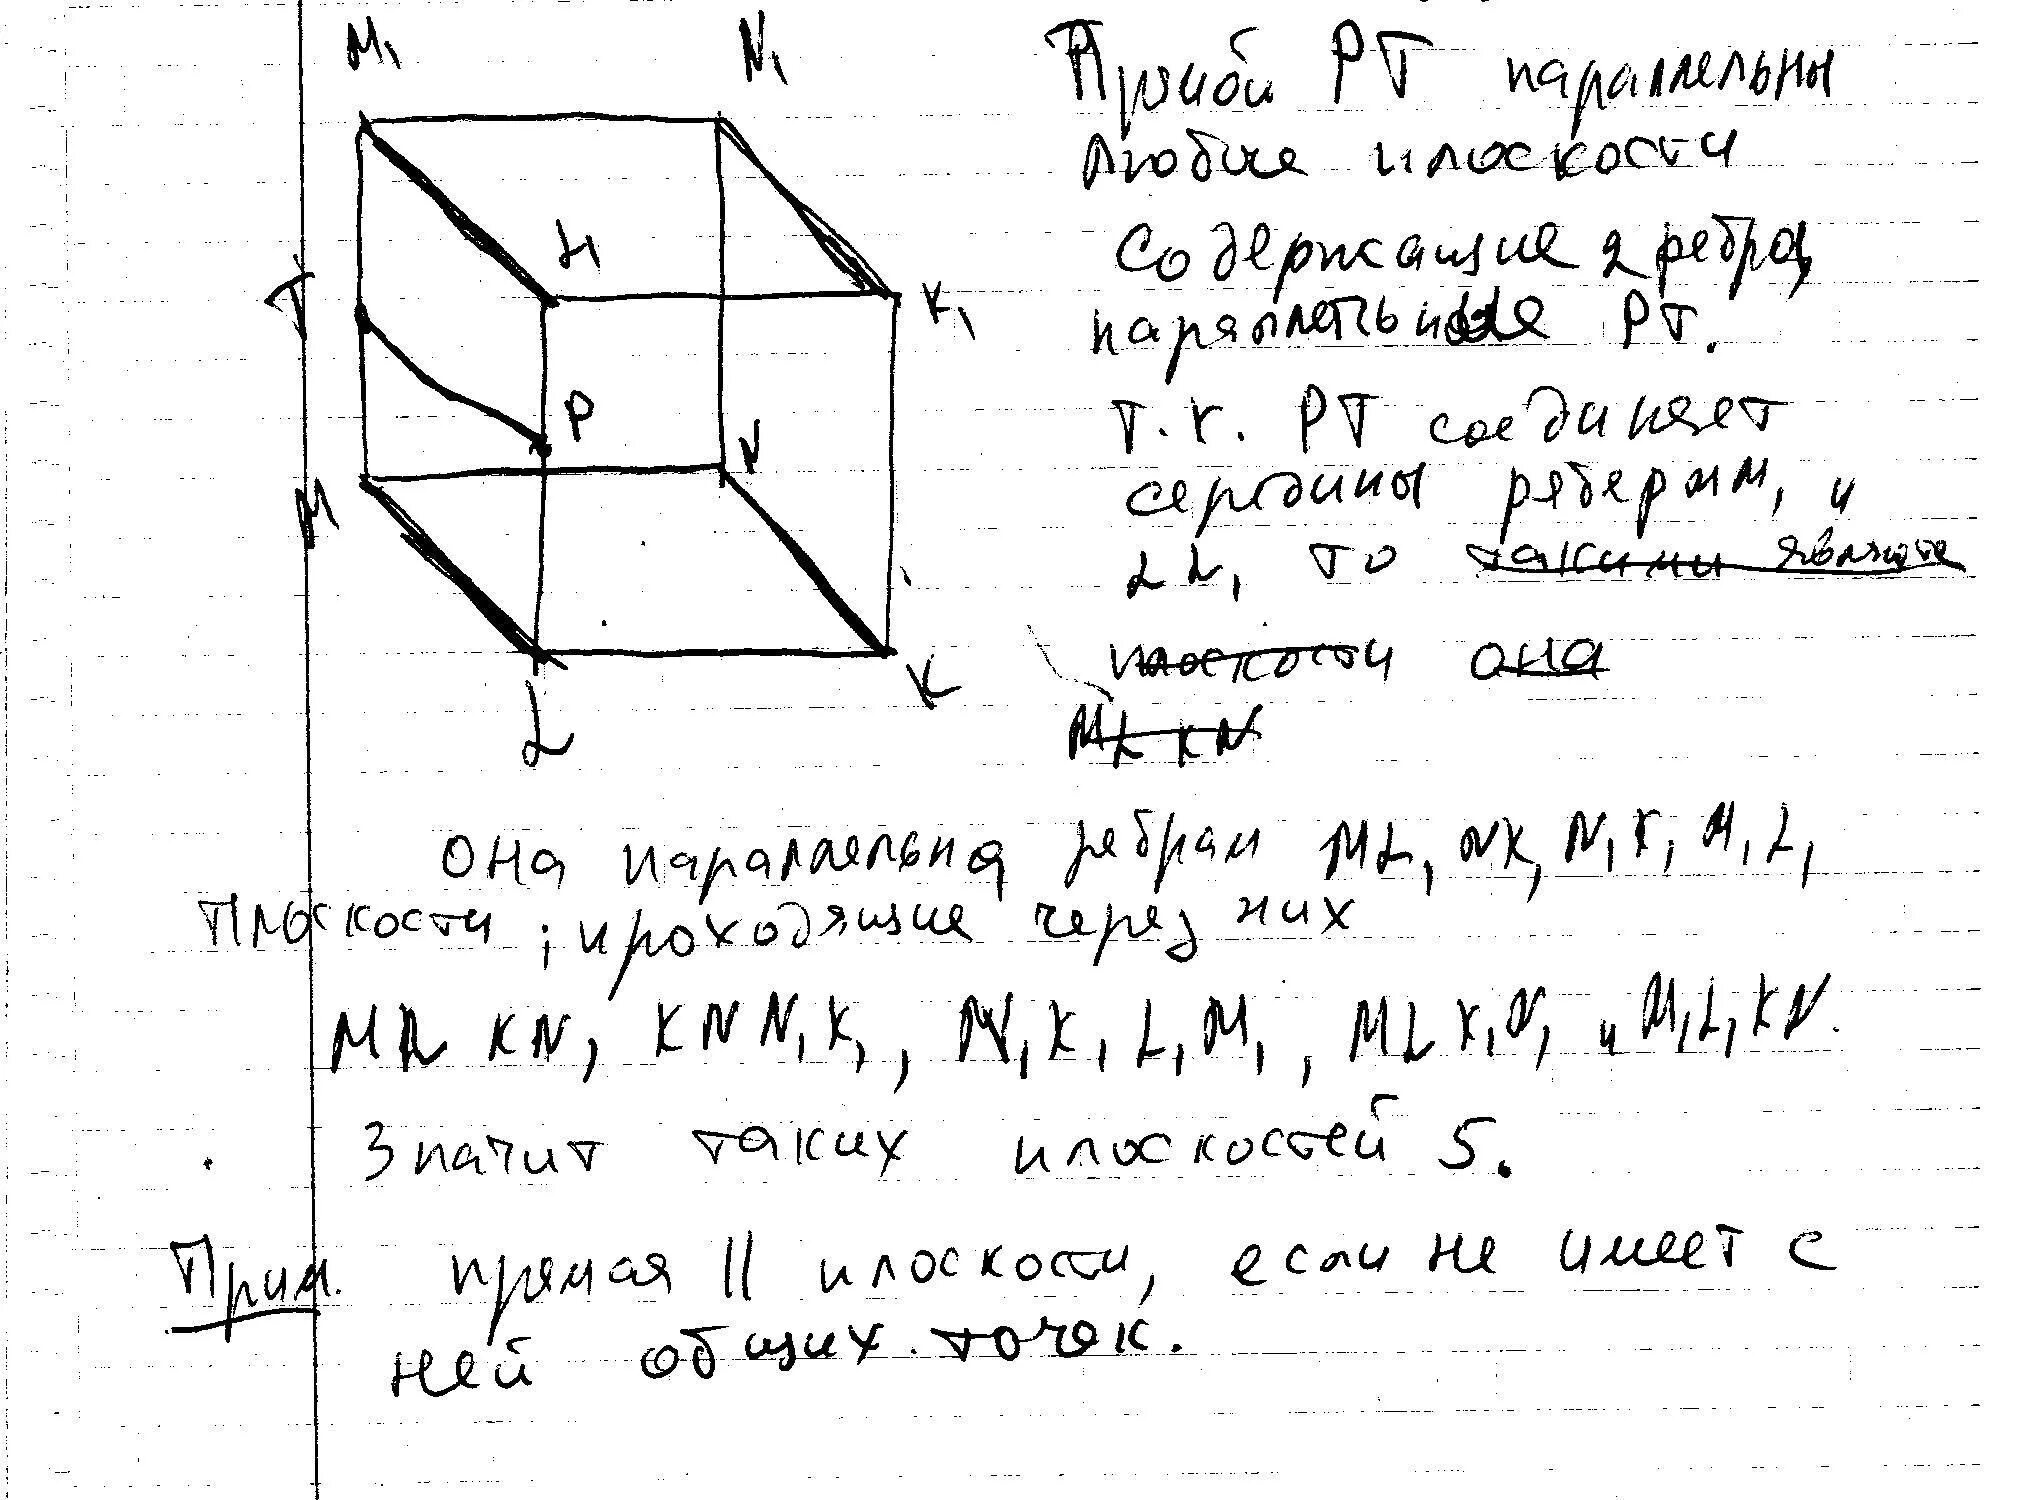 M₁ N₁
Прямой PT параллельны
любые плоскости
L₁
T
содержащие 2 ребра,
K₁
параллельные PT.
P
т.к. PT соединяет
N
M
середины и
LL₁ то такими являются
плоскости она
L K
ML KN
Она параллельна ребрам ML, NK, N₁K₁ M₁L₁
Плоскости, проходящие через них
ML KN, KNN₁K₁, N₁K₁L₁M₁, MLK₁N₁ и M₁L₁KN.
Значит таких плоскостей 5.
Прим. прямая || плоскости, если не имеет с
ней общих точек.